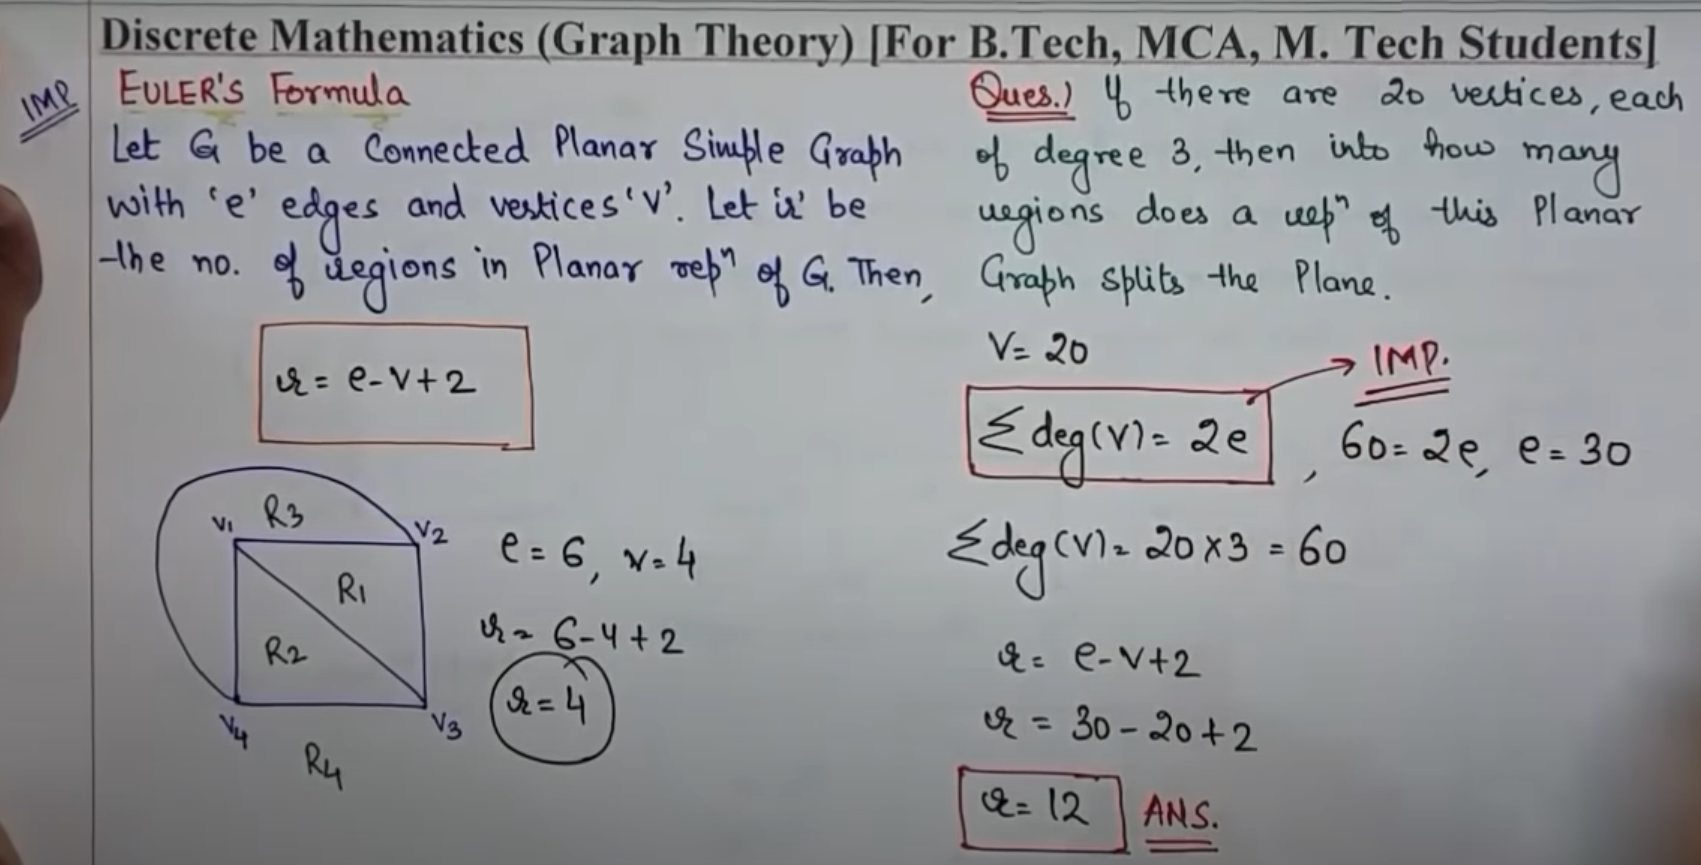 Discrete Mathematics (Graph Theory) [For B.Tech, MCA, M. Tech Students]
IMP
EULER'S Formula
Let G be a Connected Planar Simple Graph
with 'e' edges and vertices 'V'. Let 'r' be
the no. of regions in Planar repⁿ of G. Then,
r = e-V+2
V1 R3 V2
R1
R2
V4 V3
R4
e = 6, v = 4
r = 6-4+2
r = 4
Ques.) If there are 20 vertices, each
of degree 3, then into how many
regions does a repⁿ of this Planar
Graph splits the Plane.
V = 20
IMP.
Σdeg(V) = 2e, 60 = 2e, e = 30
Σdeg(V) = 20×3 = 60
r = e-V+2
r = 30-20+2
r = 12 ANS.